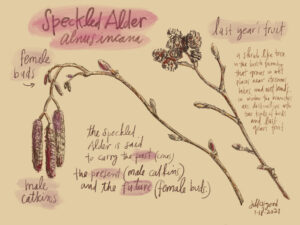 Speckled Alder
alnus incana
last year's fruit
female
buds
a shrub like tree
in the birch family
that grows in wet
places near streams
lakes and wet lands.
in winter the branches
are
two types of buds
and last
years fruit
the speckled
Alder is said
to carry the past (cones)
the present (male catkins)
and the future (female buds).
male
catkins
1-18-2021